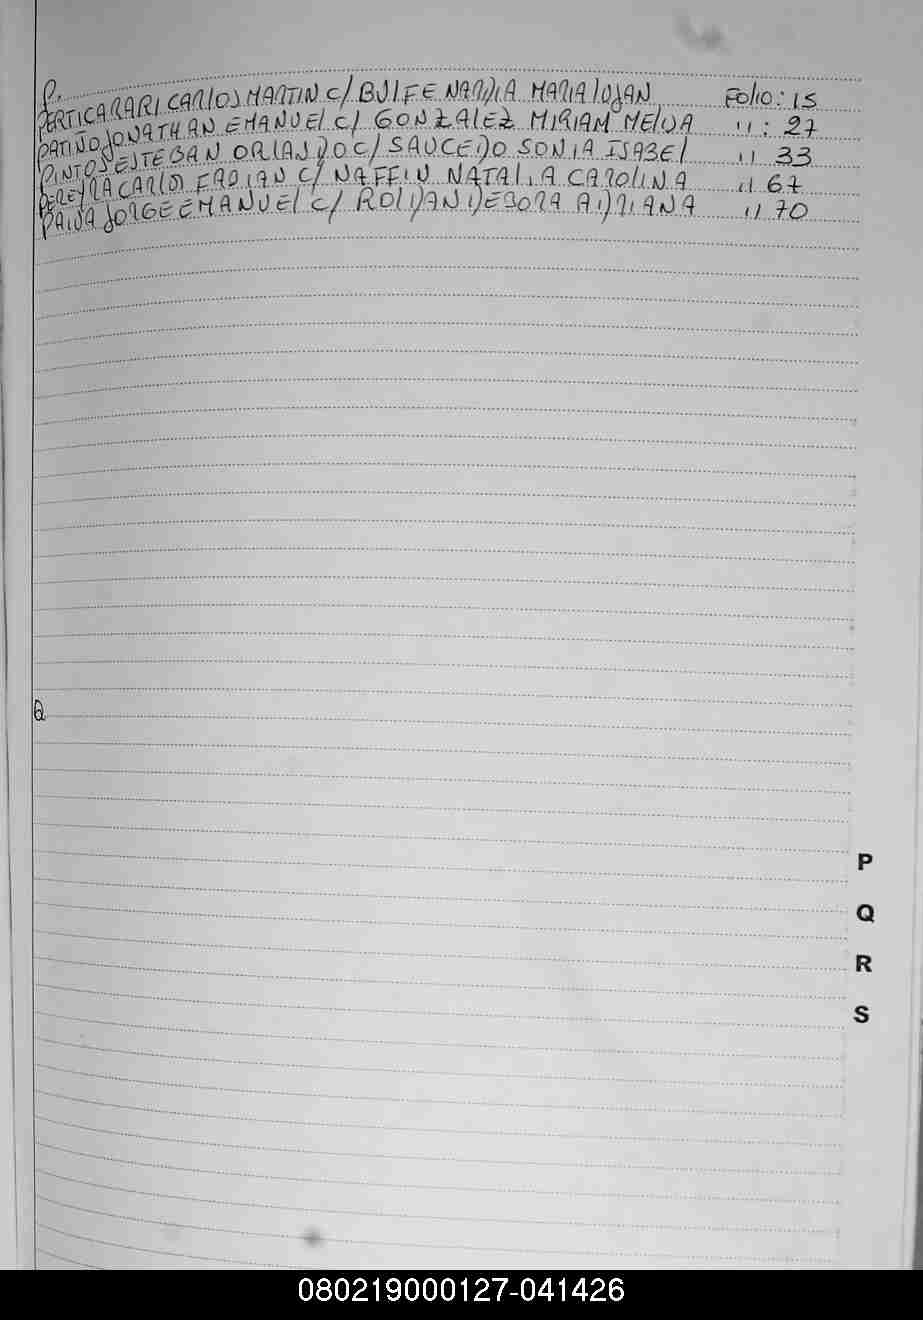 P.
PERTICARARI CARLOS MARTIN C/ BULFE NARDIA MARIA LUJAN FOLIO: 15
PATIÑO JONATHAN EMANUEL C/ GONZALEZ MIRIAM MELINA 11 : 27
PINTOS ESTEBAN ORLANDO C/ SAUCEDO SONIA ISABEL 11 33
PEREYRA CARLOS FABIAN C/ NAFFIN NATALIA CAROLINA 11 67
PAIVA JORGE EMANUEL C/ ROLDAN DEBORA ADRIANA 11 70
Q
P
Q
R
S
080219000127-041426